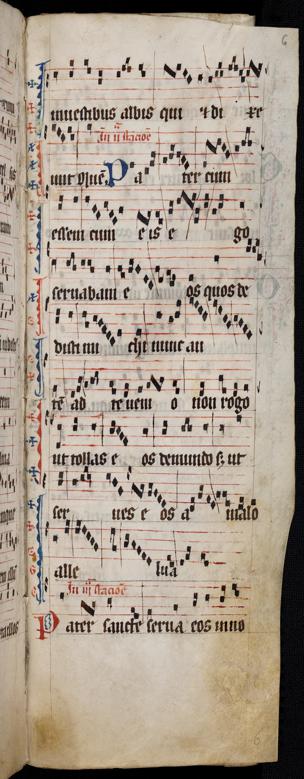 6
in uestibus albis qui & di xe
runt
In ii stacioe
Pa ter cum
essem cum e is e go
seruabam e os quos de
disti mi chi nunc au
tē ad te ueni o non rogo
ut tollas e os de mundo s; ut
ser ues e os a malo
alle lu a
In iii stacioe
Pater sancte serua eos in no
6